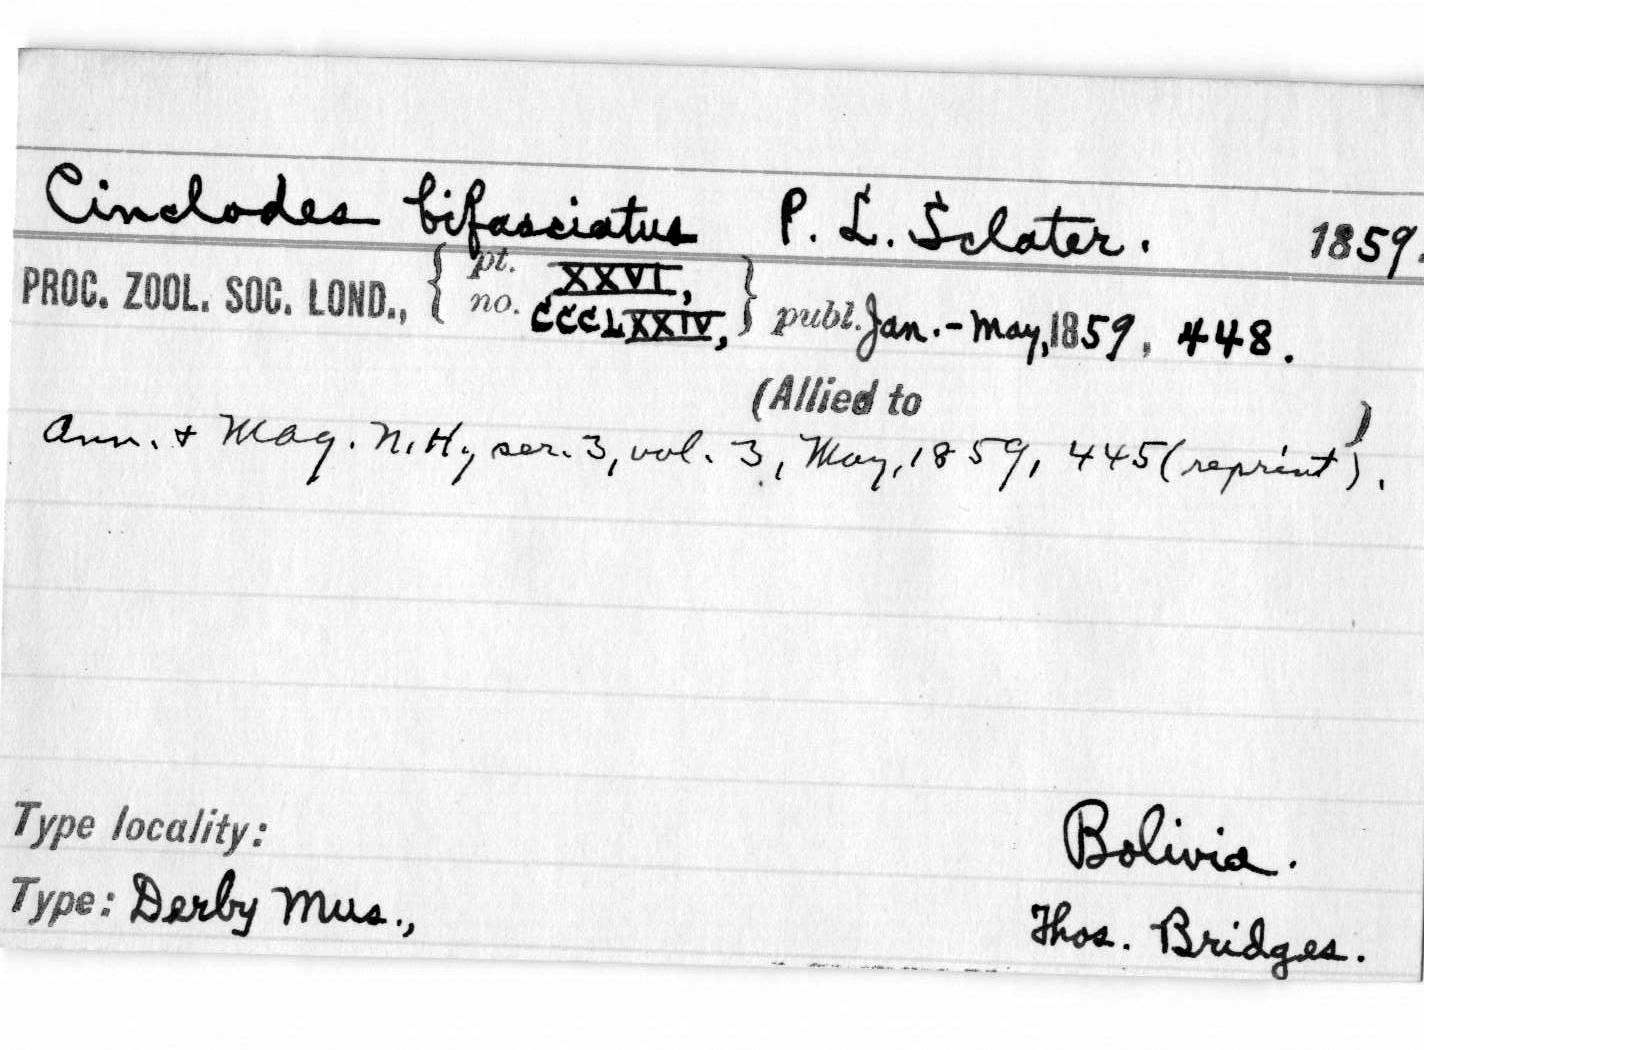 Cinclodes bifasciatus P. L. Sclater. 1859.
PROC. ZOOL. SOC. LOND., { pt. XXVI, no. CCCLXXIV, } publ. Jan.-May, 1859, 448.
(Allied to )
Ann. + Mag. N. H., ser. 3, vol. 3, May, 1859, 445 (reprint).
Type locality: Bolivia.
Type: Derby Mus., Thos. Bridges.